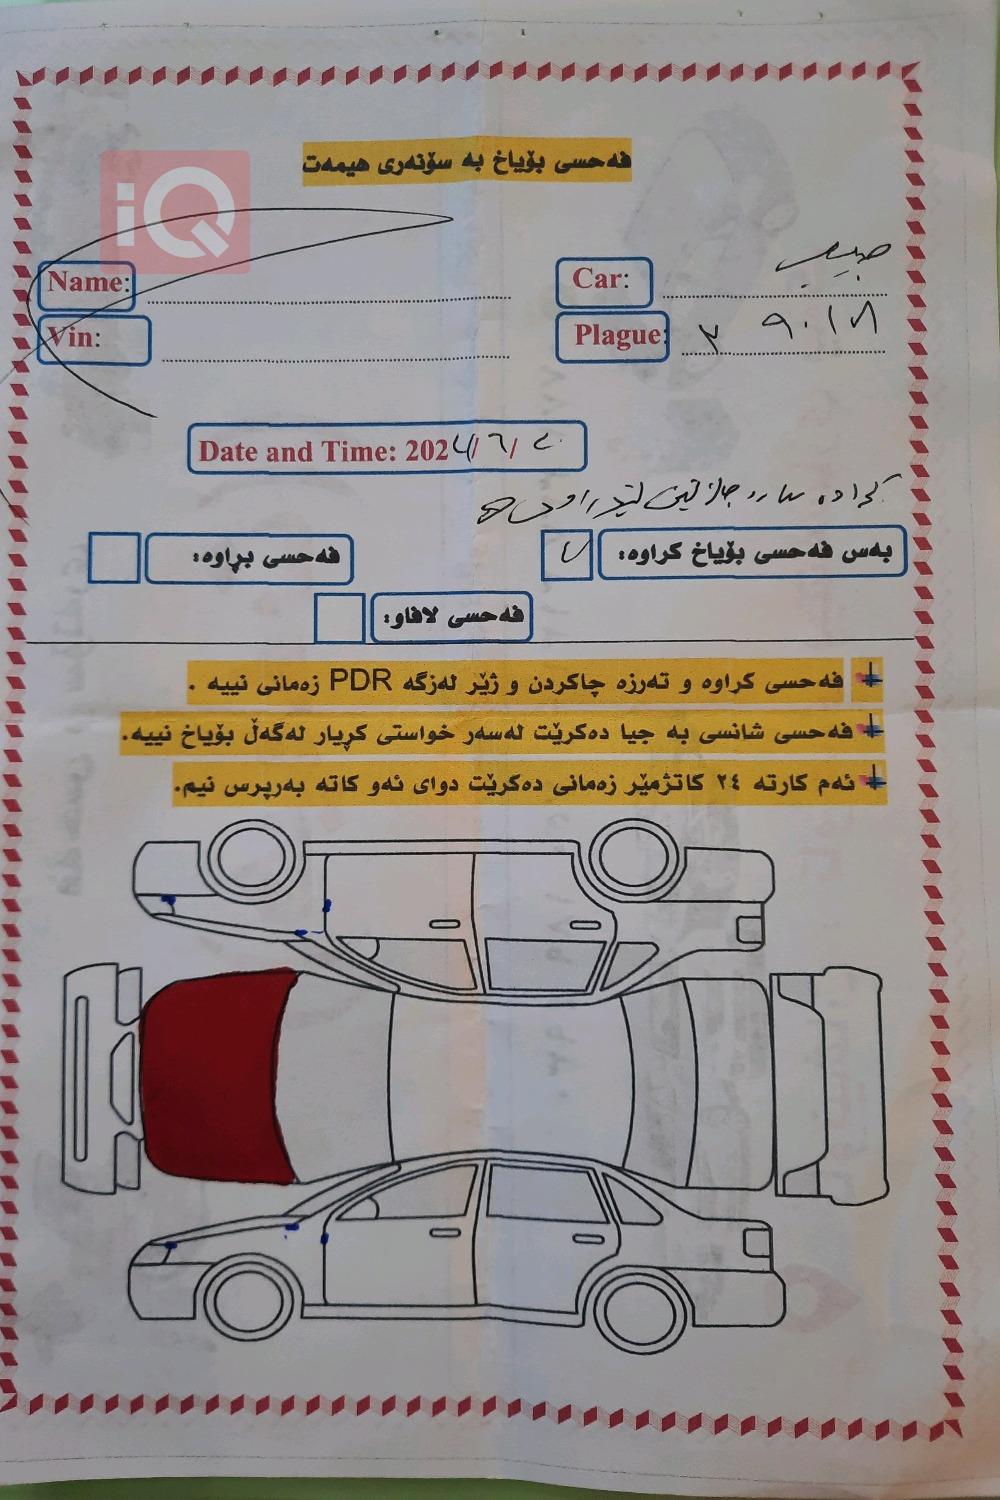 فەحسی بۆیاخ بە سۆنەری هیمەت
iQ
Name:
Car:
Vin:
Plague: ٣ ٩٠١٨
Date and Time: 2024/٦/٢٠
بەس فەحسی بۆیاخ کراوە:
فەحسی بڕاوە:
فەحسی لافاو:
فەحسی کراوە و تەرزە چاکردن و ژێر لەزگە PDR زەمانی نییە .
فەحسی شانسی بە جیا دەکرێت لەسەر خواستی کڕیار لەگەڵ بۆیاخ نییە.
ئەم کارتە ٢٤ کاتژمێر زەمانی دەکرێت دوای ئەو کاتە بەرپرس نیم.